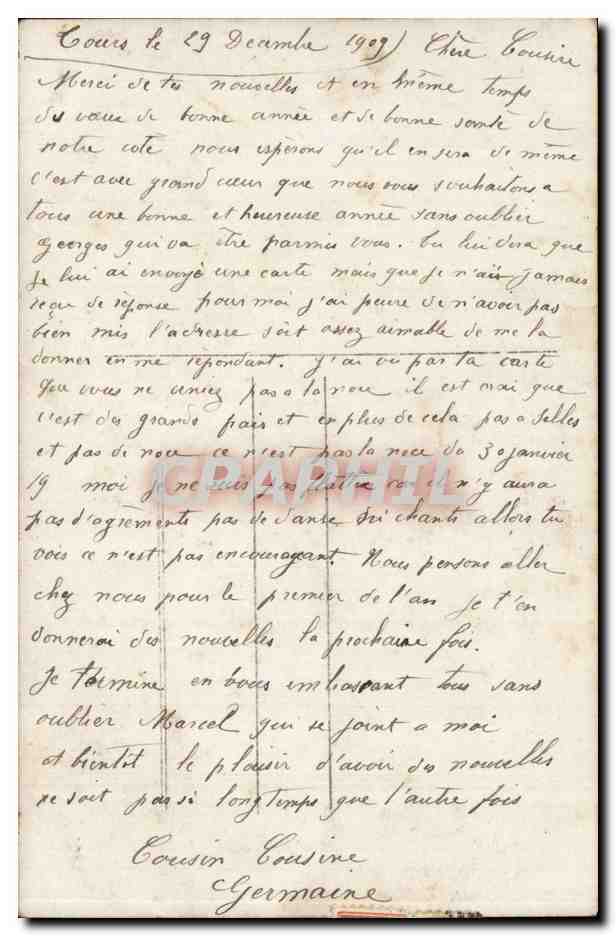 Tours le 29 Décembre 1909) Chère Cousine
Merci de tes nouvelles et en même temps
des vœux de bonne année et de bonne santé de
notre coté nous espérons qu'il en sera de même
C'est avec grand cœur que nous vous souhaitons a
tous une bonne et heureuse année sans oublier
Georges qui va être parmis vous. tu lui dira que
je lui ai envoyé une carte mais que je n'ais jamais
reçue de réponse pour moi j'ai peure de n'avoir pas
bien mis l'adresse soit assez aimable de me la
donner en me répondant. j'ai vu par ta carte
que vous ne veniez pas a la noce il est vrai que
c'est des grands frais et en plus de cela pas a Selles
et pas de noce ce n'est pas la noce du 30 janvier
19 moi je ne suis pas flattée car il n'y aura
pas d'agréments pas de danse ni chants allors tu
vois ce n'est pas encourageant. Nous pensons aller
chez nous pour le premier de l'an je t'en
donnerai des nouvelles la prochaine fois.
Je termine en vous embrassant tous sans
oublier Marcel qui se joint a moi
et bientôt le plaisir d'avoir des nouvelles
ne soit pas si longtemps que l'autre fois
Cousin Cousine
Germaine
CPAPHIL